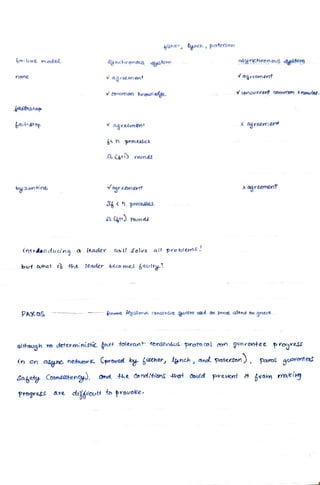 fisher, lynch, paterson
failure model synchronous system asynchronous system
none ✓ agreement ✓ agreement
✓ common knowledge ✓ concurrent common knowledge
failstop
failstop ✓ agreement x agreement
f < n processes
Ω (f+1) rounds
byzantine ✓ agreement x agreement
3f < n processes
Ω (f+1) rounds
introducing a leader will solve all problems!
but what if the leader becomes faulty?
PAXOS
although no deterministic fault tolerant consensus protocol can guarantee progress
in an async network (proved by fischer, lynch, and paterson), paxos guarantees
safety (consistency), and the conditions that could prevent it from making
progress are difficult to provoke.